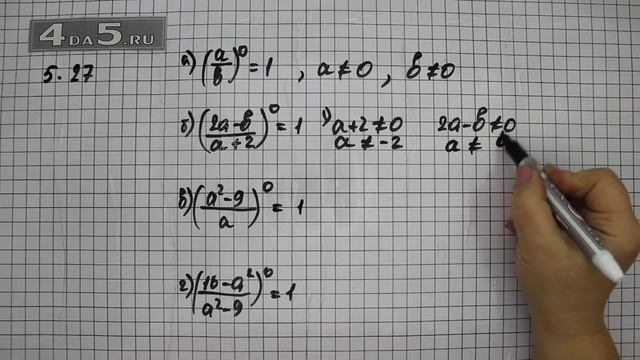 4DA5.RU
5.27
а) (a/b)^0 = 1 , a ≠ 0 , b ≠ 0
б) ((2a-b)/(a+2))^0 = 1 1) a+2 ≠ 0 2a-b ≠ 0
a ≠ -2 a ≠
в) ((a²-9)/a)^0 = 1
г) ((16-a²)/(a²-9))^0 = 1